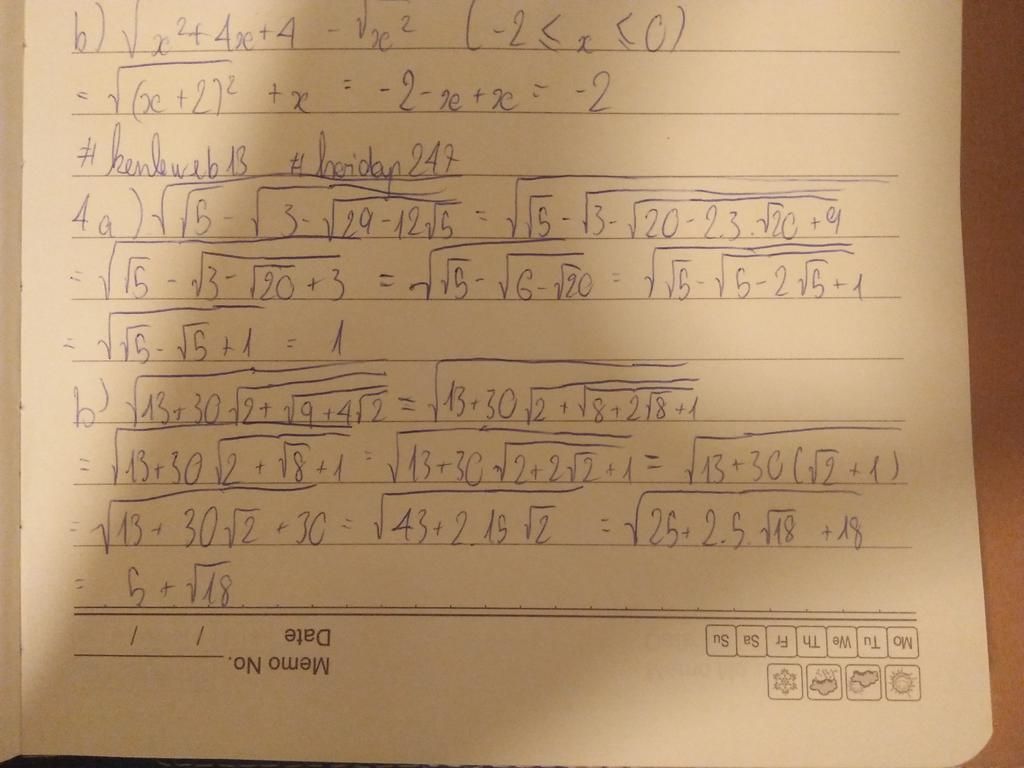 b) √(x² + 4x + 4) - √(x²) (-2 ≤ x ≤ 0)
= √((x + 2)²) + x = -2 - x + x = -2
# kenleweb13 # hoidap247
4a) √(√5 - √(3 - √(29 - 12√5))) = √(√5 - √(3 - √(20 - 2.3.√20 + 9)))
= √(√5 - √(3 - √20 + 3)) = √(√5 - √(6 - √20)) = √(√5 - √(5 - 2√5 + 1))
= √(√5 - √5 + 1) = 1
b) √(13 + 30√(2 + √(9 + 4√2))) = √(13 + 30√(2 + √(8 + 2√8 + 1)))
= √(13 + 30√(2 + √8 + 1)) = √(13 + 30√(2 + 2√2 + 1)) = √(13 + 30(√2 + 1))
= √(13 + 30√2 + 30) = √(43 + 2.15√2) = √(25 + 2.5.√18 + 18)
= 5 + √18
Mo Tu We Th Fr Sa Su
Memo No.
Date / /